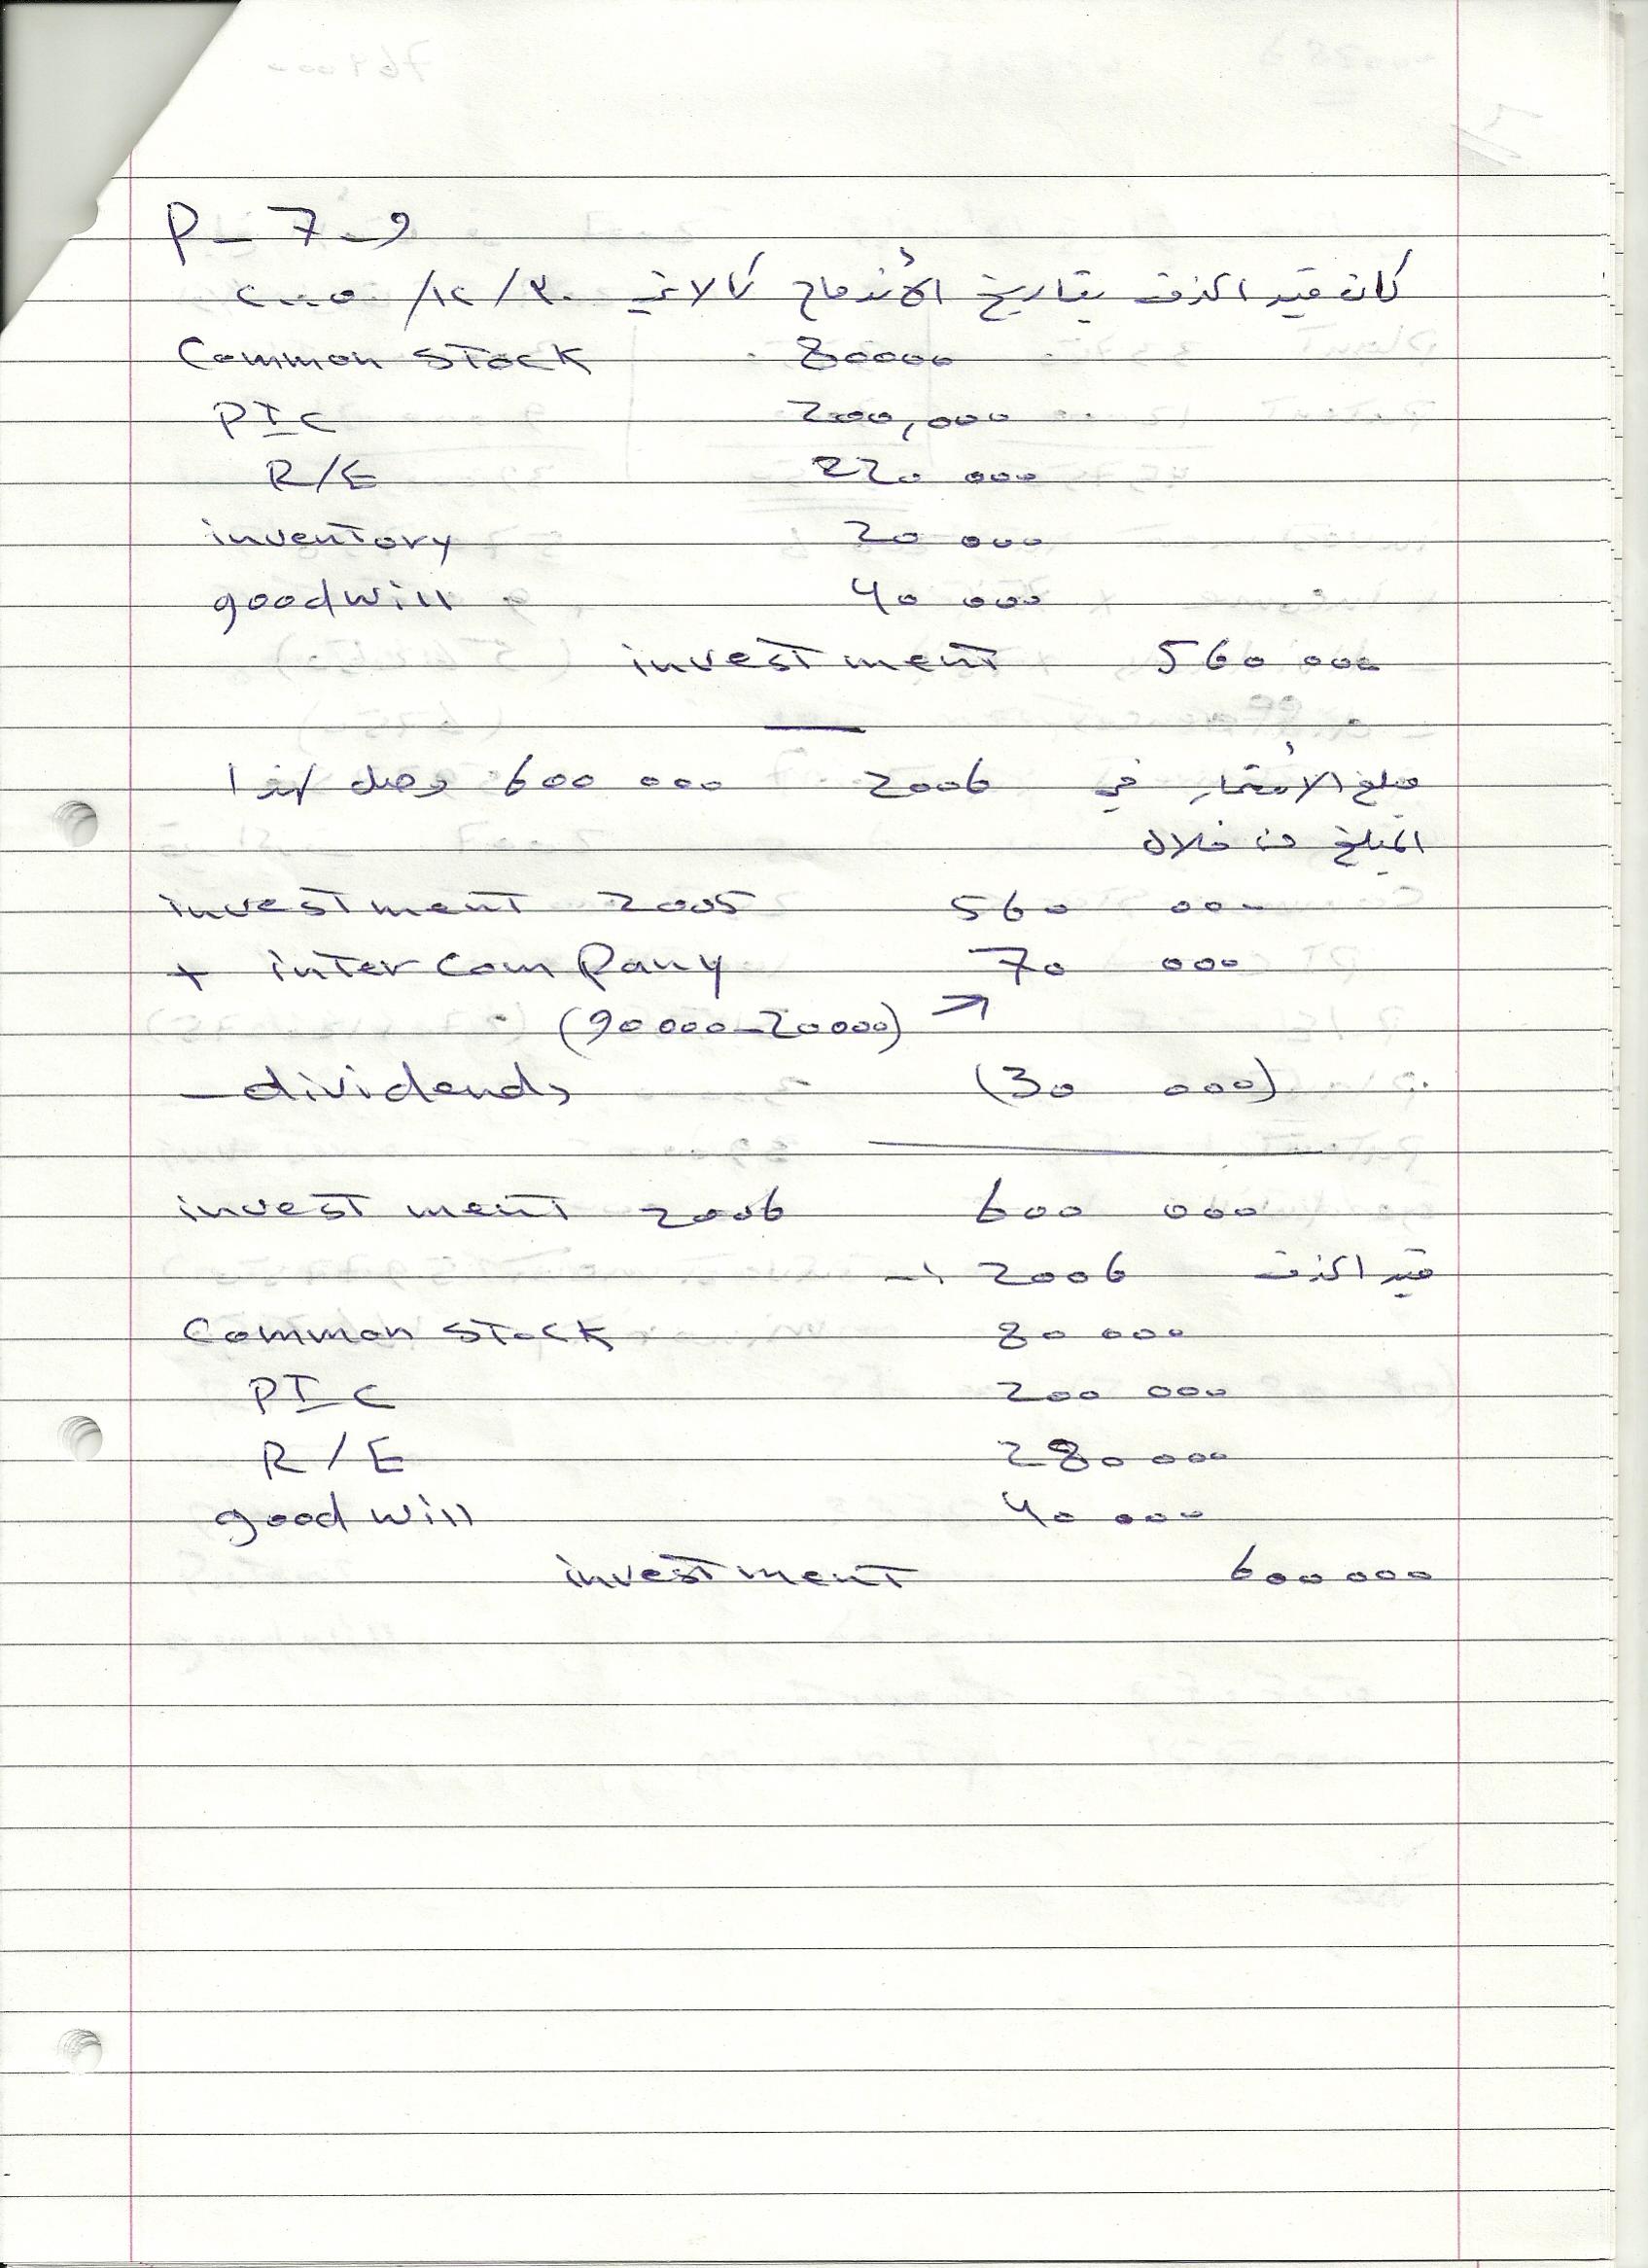 P-7-9
كان قيد الحذف بتاريخ الأندماج كالاتي ٣٠/١٢/٢٠٠٥
Common stock 80000
PIC 200,000
R/E 220 000
inventory 20 000
goodwill 40 000
investment 560 000
مبلغ الأستثمار في 2006 600 000 وصل لهذا
المبلغ من خلال
investment 2005 560 000
+ inter company 70 000
(90000-20000)
- dividends (30 000)
investment 2006 600 000
قيد الحذف 2006 :-
Common stock 80 000
PIC 200 000
R/E 280 000
good will 40 000
investment 600 000